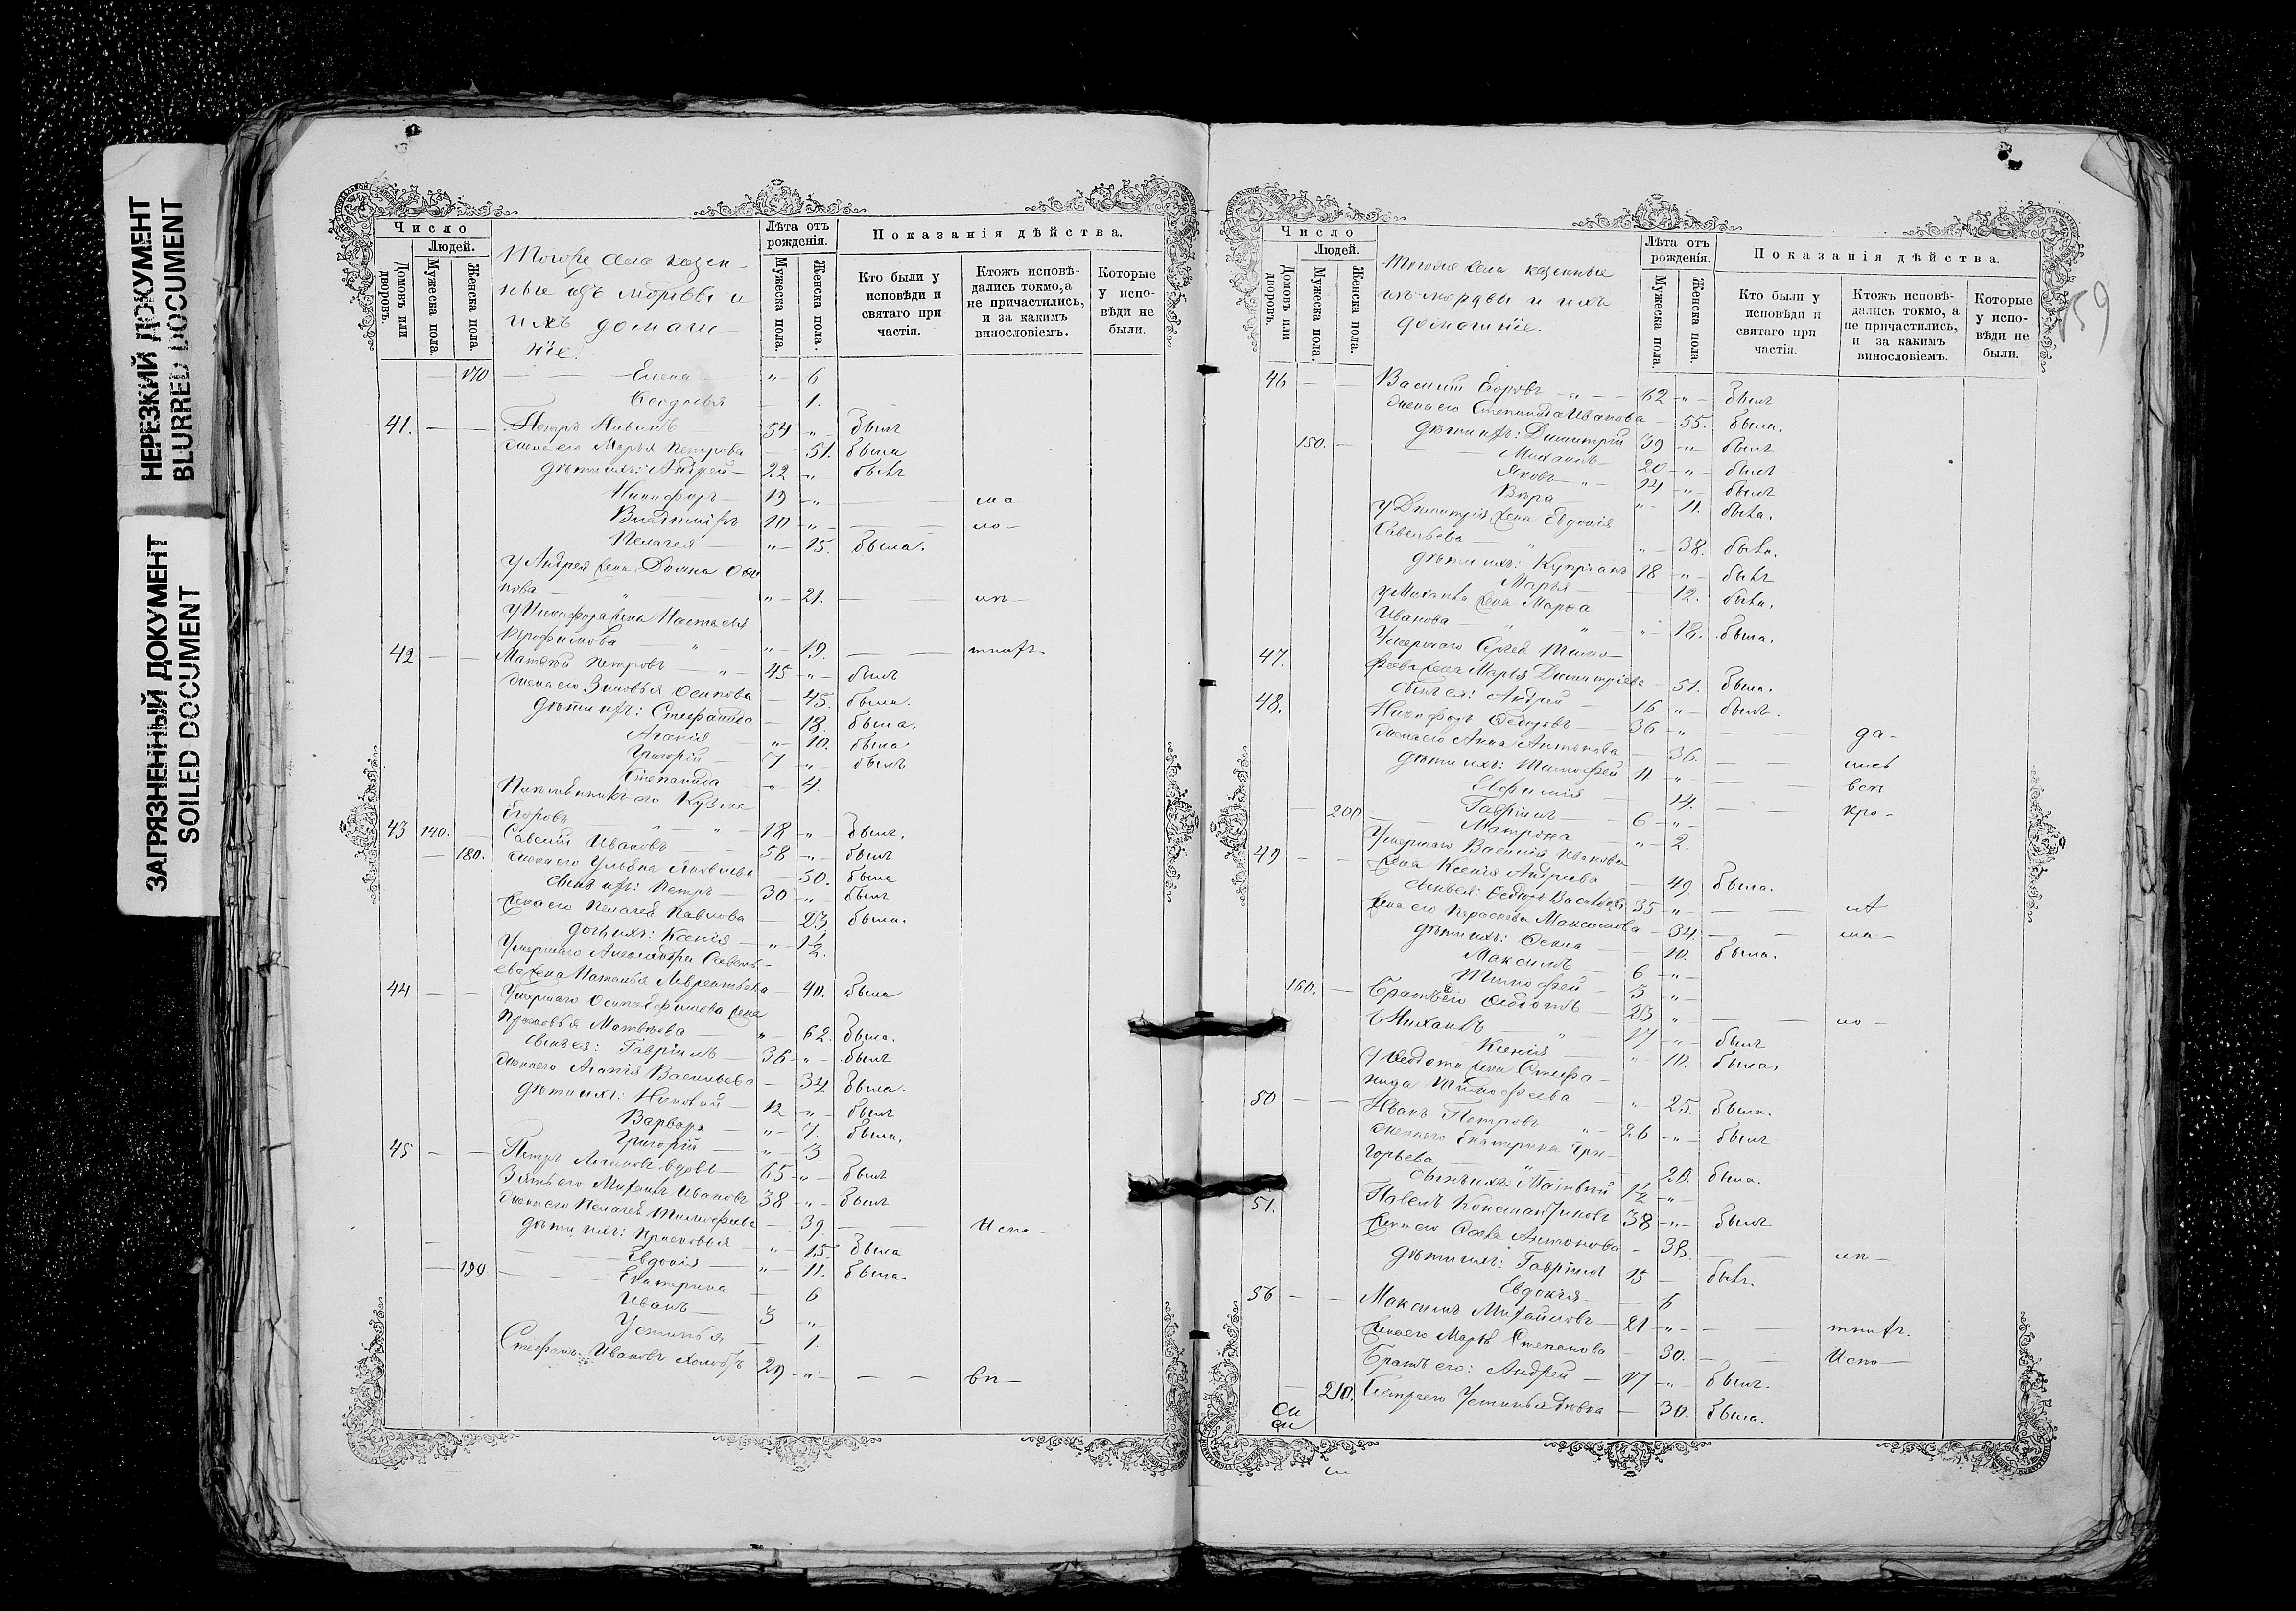 НЕРЕЗКИЙ ДОКУМЕНТ
BLURRED DOCUMENT
ЗАГРЯЗНЕННЫЙ ДОКУМЕНТ
SOILED DOCUMENT
Число
Людей.
Домовъ или дворовъ.
Мужеска пола.
Женска пола.
Тогоже села казен-
ные изъ мордвы и
ихъ домаш-
ніе.
Лѣта отъ рожденія.
Мужеска пола.
Женска пола.
Показанія дѣйства.
Кто были у исповѣди и святаго при частія.
Ктожъ исповѣ-дались токмо, а не причастились, и за какимъ винословіемъ.
Которые у испо-вѣди не были.
— 170 — — Елена — „ — 6
Ѳедосья — 1.
41. — — Петръ 54 „ — былъ
жена его Марья Петрова — 51. была
дѣти ихъ: Андрей — 22 — „ — былъ
Никифоръ — 19 — „ — —
10 — „ — —
Пелагея — „ — 15. была.
У Андрея жена Домна Оси
пова — „ — „ — 21. — —
У Никифора жена Настасья
„ — „ — 19. — —
42 — — Матвѣй Петровъ — „ — 45 — „ — былъ
жена его Зиновья Осипова — 45. была.
дѣти ихъ: Стефанида — 18. была.
Агапія „ — 10. была
Григорій — 7 — „ — былъ
Степанида — „ — 4.
Племянникъ его Кузма
Егоровъ — „ — „ — 18 — „ — былъ.
43 140. — Савелій Ивановъ — 58 — „ — былъ
— 180. жена его Ульяна Яковлева — 50. была
сынъ ихъ: Петръ — 30 — „ — былъ
жена его Пелагея Павлова — 23 была.
дочь ихъ: Ксенія — „ — 1½.
Умершаго Александра Савель-
ева жена Наталья Лаврентьева — 40. была
44 — — Умершаго Осипа Ефимова жена
Прасковья Матвѣева — „ — 62. была.
сынъ ея: Гавріилъ — 36 — „ — былъ
жена его Агапія Васильева — 34 была.
дѣти ихъ: — 12 — „ — былъ
Варвара — „ — 7. была.
Григорій — „ — 3.
45 — — Петръ вдовъ — 65 — „ — былъ
Зять его Михаилъ Ивановъ 38 — „ — былъ
жена его Пелагея Тимофѣева — 39. — — Испо-
дѣти ихъ: Прасковья — „ — 15. была
Евдокія — „ — 11. была.
— 190 — — Екатерина — 6
Иванъ — 3 — „ —
Устинья — 1.
Стефанъ Ивановъ 29 — „ — — — вп —
Число
Людей.
Домовъ или дворовъ.
Мужеска пола.
Женска пола.
Тогоже села казенные
изъ мордвы и ихъ
домашніе.
Лѣта отъ рожденія.
Мужеска пола.
Женска пола.
Показанія дѣйства.
Кто были у исповѣди и святаго при частія.
Ктожъ исповѣ-дались токмо, а не причастились, и за какимъ винословіемъ.
Которые у испо-вѣди не были.
59
46 — — Василій Егоровъ — „ — 62 — „ — былъ
жена его Степанида Иванова — 55. была.
150. — дѣти ихъ: Димитрій 39 — „ — былъ
Михаилъ — 20 — „ — былъ
Яковъ — „ — 14 — „ — былъ
Вѣра — „ — 11. была.
У Димитрія жена Евдокія
Савельева — „ — „ — 38. была.
дѣти ихъ: Купріанъ 18 — „ — былъ
Марья — 12. была.
У Михаила жена Марѳа
Иванова — „ — „ — „ — 18. была.
47. Умершаго Сергѣя Тимо-
феева жена Марья Димитріева — 51. была.
сынъ ея: Андрей — 16 — „ — былъ.
48. Никифоръ Ѳедоровъ — 36 — „ — — — да-
жена его Анна Антонова — 36. — —
дѣти ихъ: Тимофей 11 — „ — — —
Евфимія — 14. —
— 200 — Гавріилъ — 6 — „ —
Матрона „ — 2.
49 — — Умершаго Василія Иванова
жена Ксенія Андреева — 49. была.
сынъ ея: Ѳедоръ Васильевъ 35 — „ — — —
жена его Параскева Максимова — 34. — —
дѣти ихъ: — 10. была.
Максимъ — 6 — „ —
Тимофей — 3 — „ —
160. — Братъ его Ѳедотъ — 23 „ — — —
Михаилъ — „ 17 — „ — былъ
Ксенія „ — 10. была.
У Ѳедота жена Стефа-
нида Тимофеева — „ — 25. была.
50 — — Иванъ Петровъ „ — 26 — „ — былъ
жена его Екатерина Гри-
горьева — „ — 20. была.
сынъ ихъ: Матвѣй 1½ — „ —
51. Павелъ Константиновъ 38 — „ — былъ
жена его Антонова — 38. — —
дѣти ихъ: Гавріилъ 15 — былъ.
Евдокія — — 6
56 — — Максимъ Михайловъ — 21 — „ — — —
жена его Марѳа Степанова — 30. — Испо —
Братъ его: Андрей — 17 — „ — былъ.
— 210. Сестра его Устинья дѣвка — 30. была.